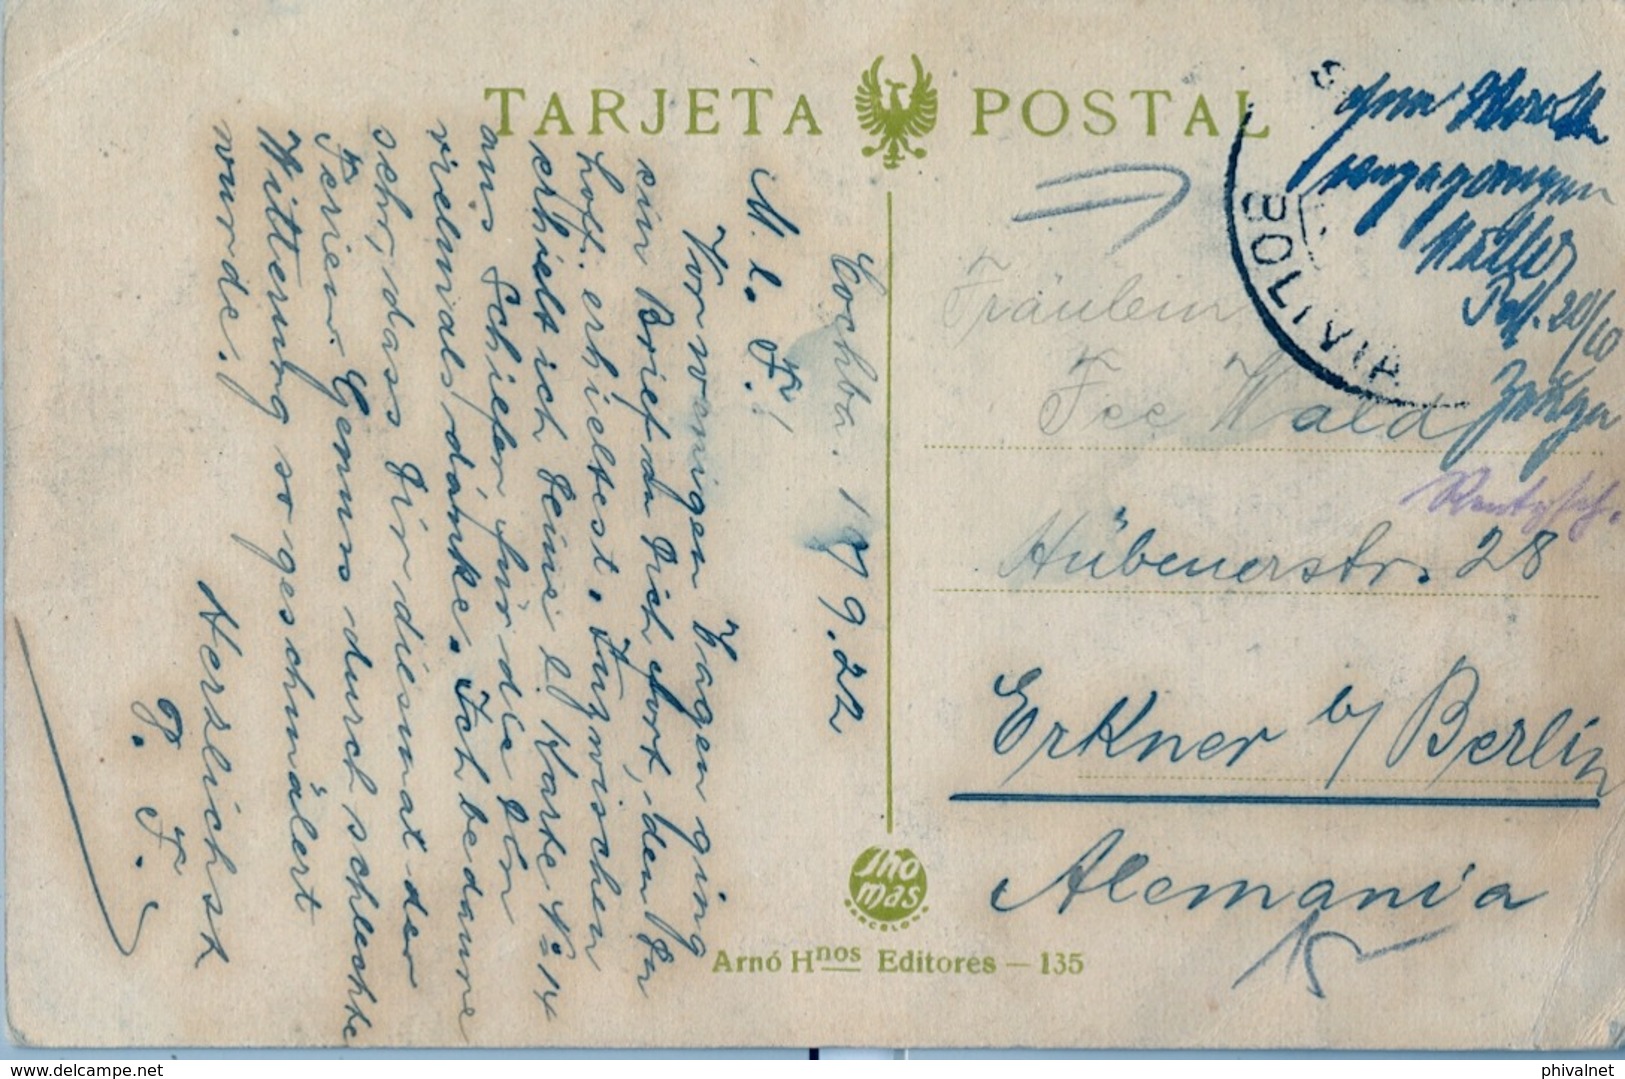 TARJETA POSTAL
Cochba. 19 9.22
M. l. F.,
Vor wenigen Tagen ging
ein Brief an Dich fort, den Du
hoff. erhieltest. Inzwischen
erhielt ich Deine l. Karte No 14
aus Schiefer für die Dir
vielmals danke. Ich bedaure
sehr, dass Dir diesmal der
Ferien Genuss durch schlechte
Witterung so geschmälert
wurde.
Herzlichst
P. F.
BOLIVIA
ohne
eingegangen
Müller
20/10
Zeuge
Fräulein
Fee Wald
Hübenerstr. 28
Erkner b/ Berlin
Alemania
Thomas
BARCELONA
Arnó Hnos Editores — 135
www.delcampe.net
phivalnet